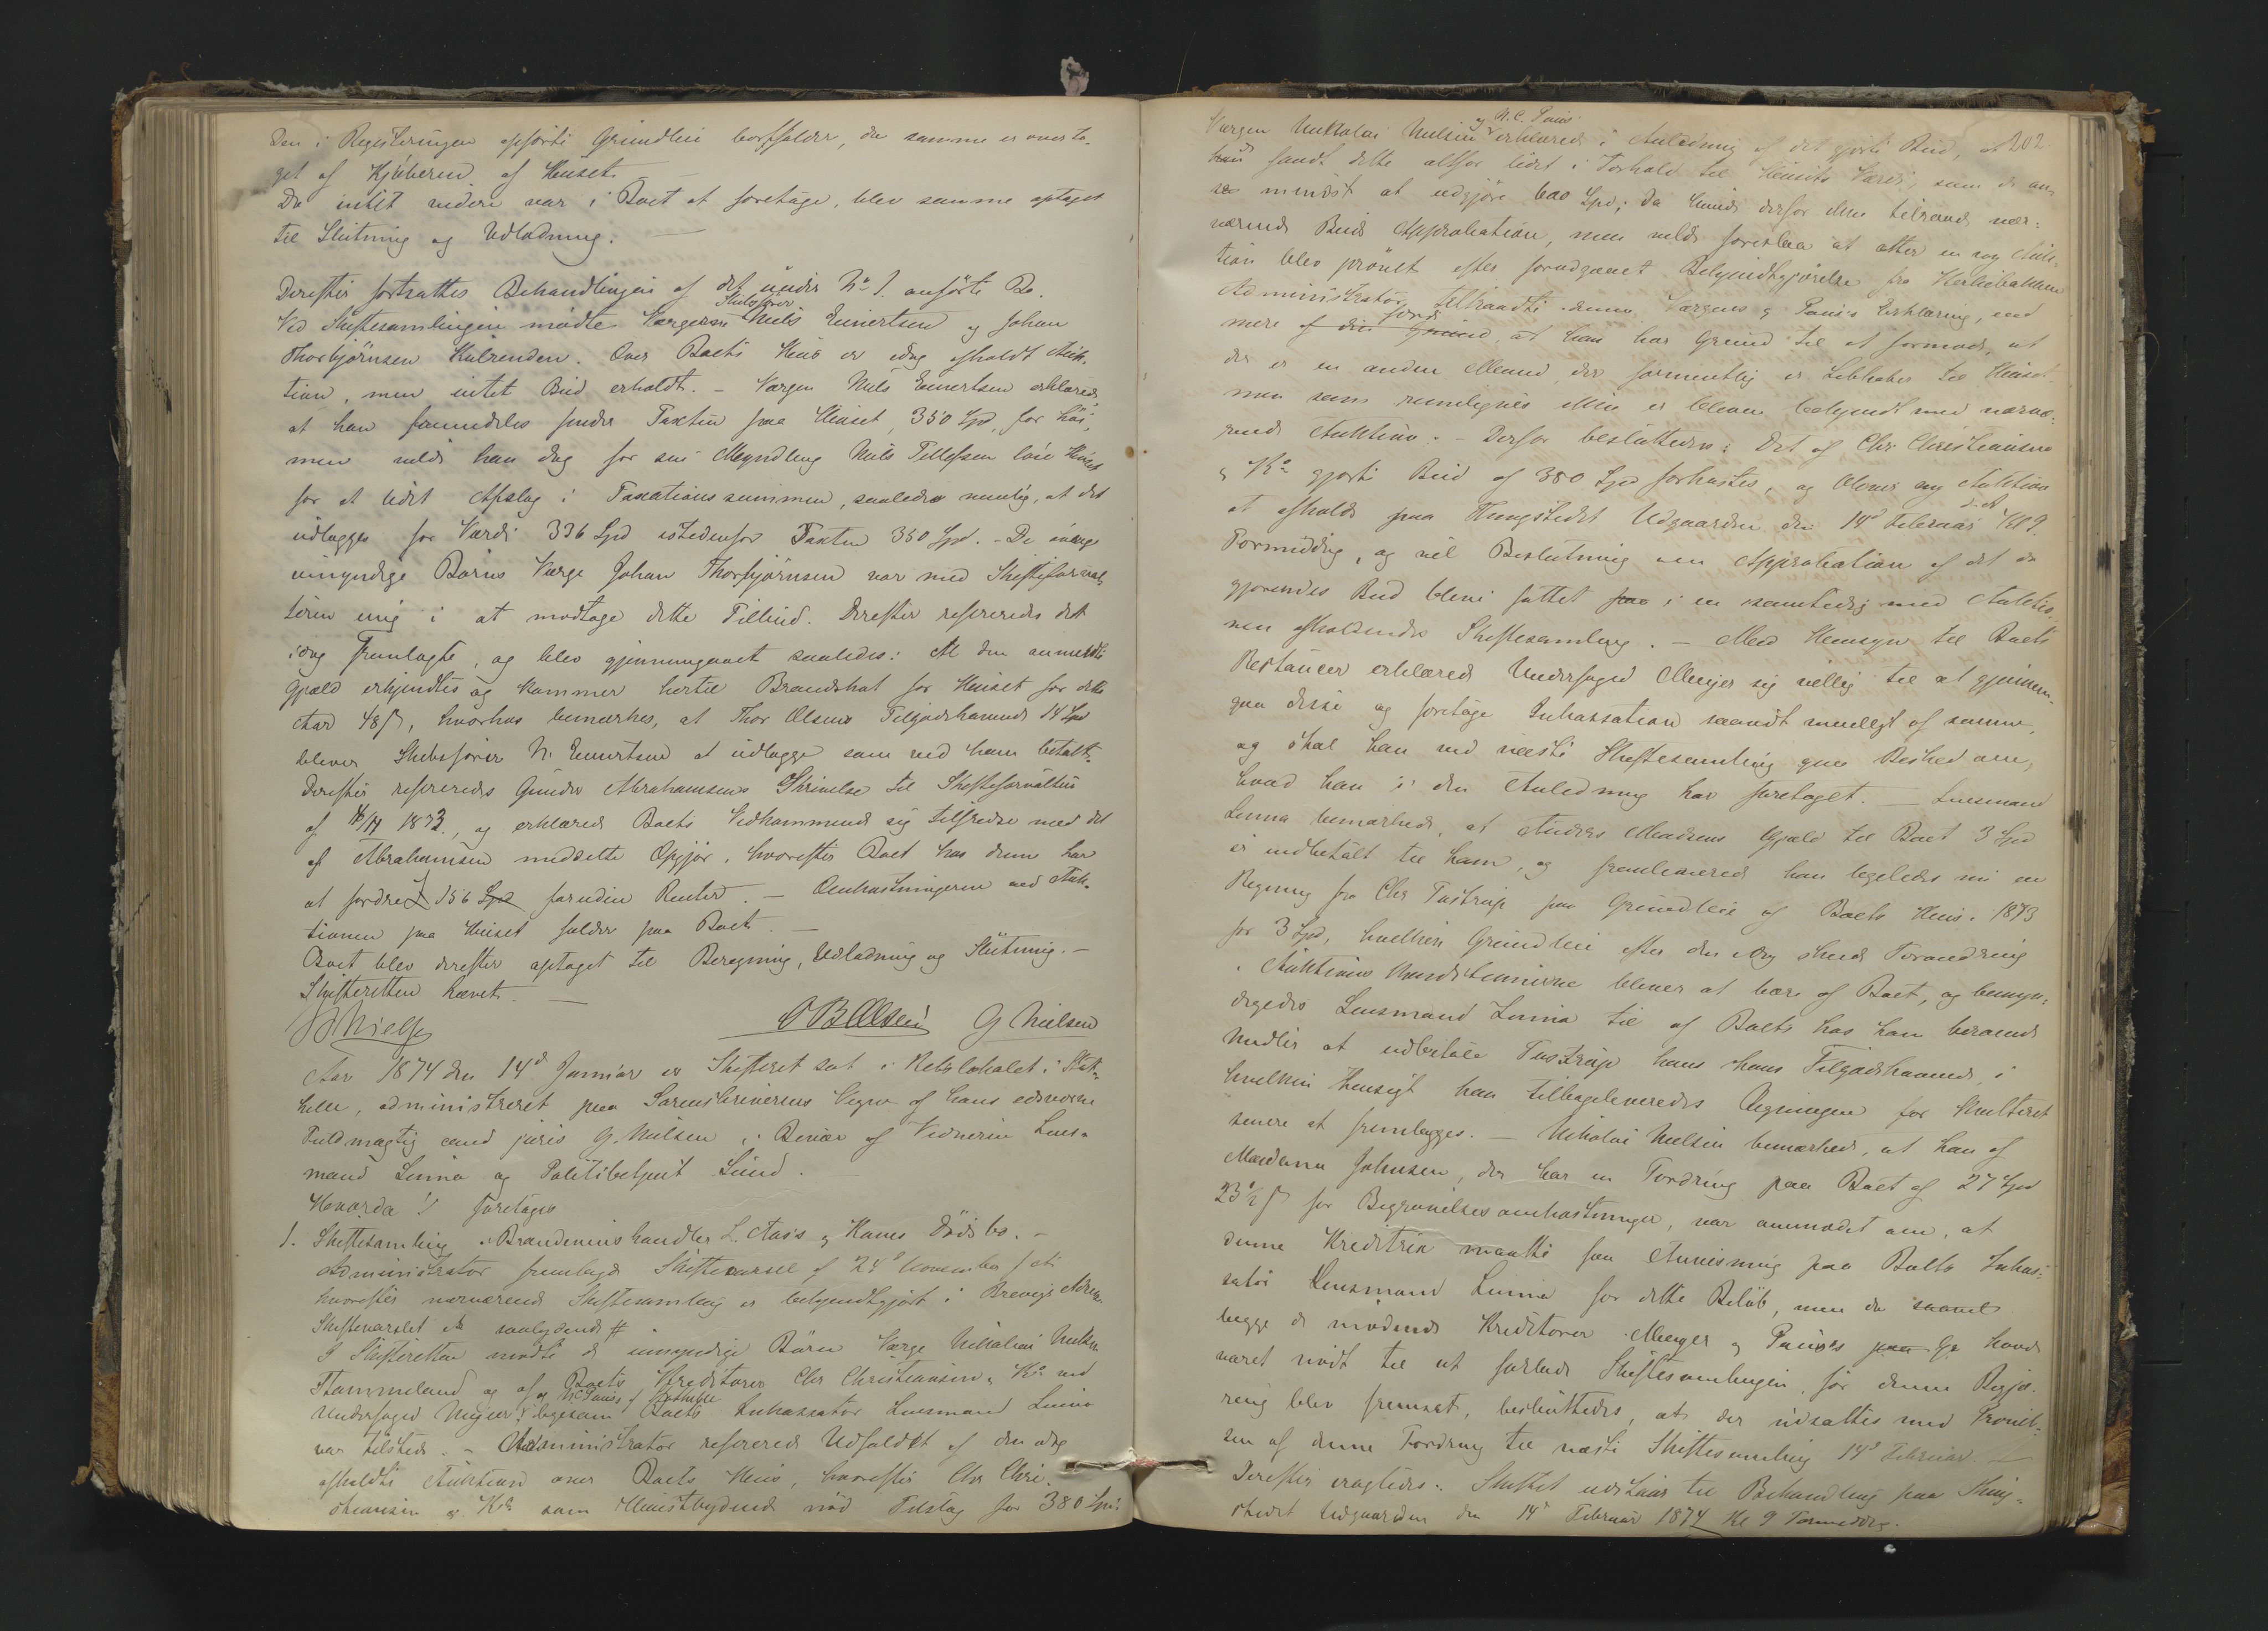 Den i Registeringen opførte Grundleie bortfalder, da samme er overta-
get af Kjøberen af Huset. —
Da intet videre var i Boet at foretage, blev samme optaget
til Slutning og Udlodning. —
Derefter fortsattes Behandlingen af det under No 1. anførte Bo.
Ved Skiftesamlingen mødte Værgerne Skibsfører Niels Evertsen og Johan
Thorbjørnsen Kulrenden. Over Boets Huus er idag afholdt Auk-
tion, men intet Bud erholdt. – Værgen Niels Evertsen erklærede
at han fremdeles finder Taxten paa Huset, 350 Spd, for høi,
men vilde han dog for sin Myndling Niels Tellefsen løse Huset
for et lidet Afslag i Taxationssummen, saaledes nemlig, at det
udlægges for Værdi 336 Spd istedenfor Taxten 350 Spd. – De øvrige
umyndige Børns Værge Johan Thorbjørnsen var med Skifteforval-
teren enig i at modtage dette Tilbud. Derefter refereredes det
idag Fremlagte, og blev gjennemgaaet saaledes: Al den anmeldte
Gjæld erkjendtes og kommer hertil Brandskat for Huset for dette
Aar 48 ß, hvorhos bemærkes, at Thor Olsens Tilgodehavende 14 Spd
bliver Skibsfører N. Evertsen at udlægge som ved ham betalt.
Derefter refereredes Gunder Abrahamsens Skrivelse til Skifteforvalteren
af 1873, og erklærede Boets Vedkommende sig tilfredse med det
af Abrahamsen medsendte Opgjør, hvorefter Boet hos denne har
at fordre 156 Spd foruden Renter. – Omkostningerne ved Auk-
tionen paa Huset falder paa Boet. —
Boet blev derefter optaget til Beregning, Udlodning og Slutning. –
Skifteretten hævet. —
O B Olsen G Nielsen
Aar 1874 den 14d Januar er Skifteret sat i Retslokalet i Stat-
helle, administreret paa Sorenskriverens Vegne af hans edsvorne
Fuldmægtig cand juris G. Nielsen i Overvær af Vidnerne Lens-
mand Linna og Politibetjent Lund.
Hvorda! foretages
1. Skiftesamling i Brændeviinshandler L. Aas's og Kones Dødsbo. –
Administrator fremlagde Skiftevarsel af 24d November f. A.
hvorefter nærværende Skiftesamling er bekjendtgjort i Brevigs Adresse.
Skiftevarslet er saalydende #
I Skifteretten mødte de umyndige Børns Værge Nikolai Nielsen
Stammeland og af Boets Kreditorer Chr Christiansen & Ko ved
Underfoged Meyer og N. C. Paus, ligesom Boets Inkassator Lensmand Linna
var tilstede. – Administrator refererede Udfaldet af den idag
afholdte Auktion over Boets Huus, hvorefter Chr Chri-
stiansen & Ko som Høistbydende nød Tilslag for 380 Spd:
202.
Værgen Nikolai Nielsen og N. C. Paus erklærede i Anledning af det gjorte Bud, at
han fandt dette altfor lidet i Forhold til Husets Værdi, som de an-
se mindst at udgjøre 600 Spd; De kunde derfor ikke tilraade nær-
værende Buds Approbation, men vilde foreslaa at atter en ny Auk-
tion blev prøvet efter forudgaaet Bekjendtgjørelse fra Kirkebakken
Administrator tiltraadte denne Værgens og Paus's Erklæring, end
mere af den Grund fordi, at han har Grund til at formode, at
der er en anden Mand der formentlig er Liebhaber til Huset
men som rimeligvis ikke er bleven bekjendt med nærvæ-
rende Auktion. – Derfor besluttedes: Det af Chr Christiansen
& Ko gjorte Bud af 380 Spd forkastes, og bliver ny Auktion
at afholde paa Thingstedet Udgaarden den 14d Februar d. A. Kl 9.
Formiddag, og vil Beslutning om Approbation af det da
gjørendes Bud blive fattet i en samtidig med Auktio-
nen afholdendes Skiftesamling. – Med Hensyn til Boets
Restancer erklærede Underfoged Meyer sig villig til at gjennem-
gaa disse og foretage Inkassation saavidt muligt af samme,
og skal han ved næste Skiftesamling give Besked om,
hvad han i den Anledning har foretaget. – Lensmand
Linna bemærkede, at Anders Madsens Gjæld til Boet 3 Spd
er indbetalt til ham, og fremleverede han ligeledes nu en
Regning fra Chr Tostrup paa Grundleie af Boets Huus i 1873
for 3 Spd, hvilken Grundleie efter den idag skeede Forandring
i Auktions Konditionerne bliver at bære af Boet, og bemyn-
digedes Lensmand Linna til af Boets hos ham beroende
Midler at udbetale Tostrup hans Tilgodehavende, i
hvilken Hensigt han tilbageleveredes Regningen for kvitteret
senere at fremlægges. – Nikolai Nielsen bemærkede, at han af
Madame Johnsen, der har en Fordring paa Boet af 27 Spd
23 1/2 ß for Begravelsesomkostninger, var anmodet om, at
denne Kreditrix maatte faa Anvisning paa Boets Inkas-
sator Lensmand Linna for dette Beløb, men da saavel
begge de mødende Kreditorer Meyer og Paus havde
været nødt til at forlade Skiftesamlingen, før denne Begjæ-
ring blev fremsat, besluttedes, at der udsattes med Prøvel-
sen af denne Fordring til næste Skiftesamling 14d Februar. —
Derefter eragtedes: Skiftet udstaar til Behandling paa Thing-
stedet Udgaarden den 14d Februar 1874 Kl 9 Formiddag.